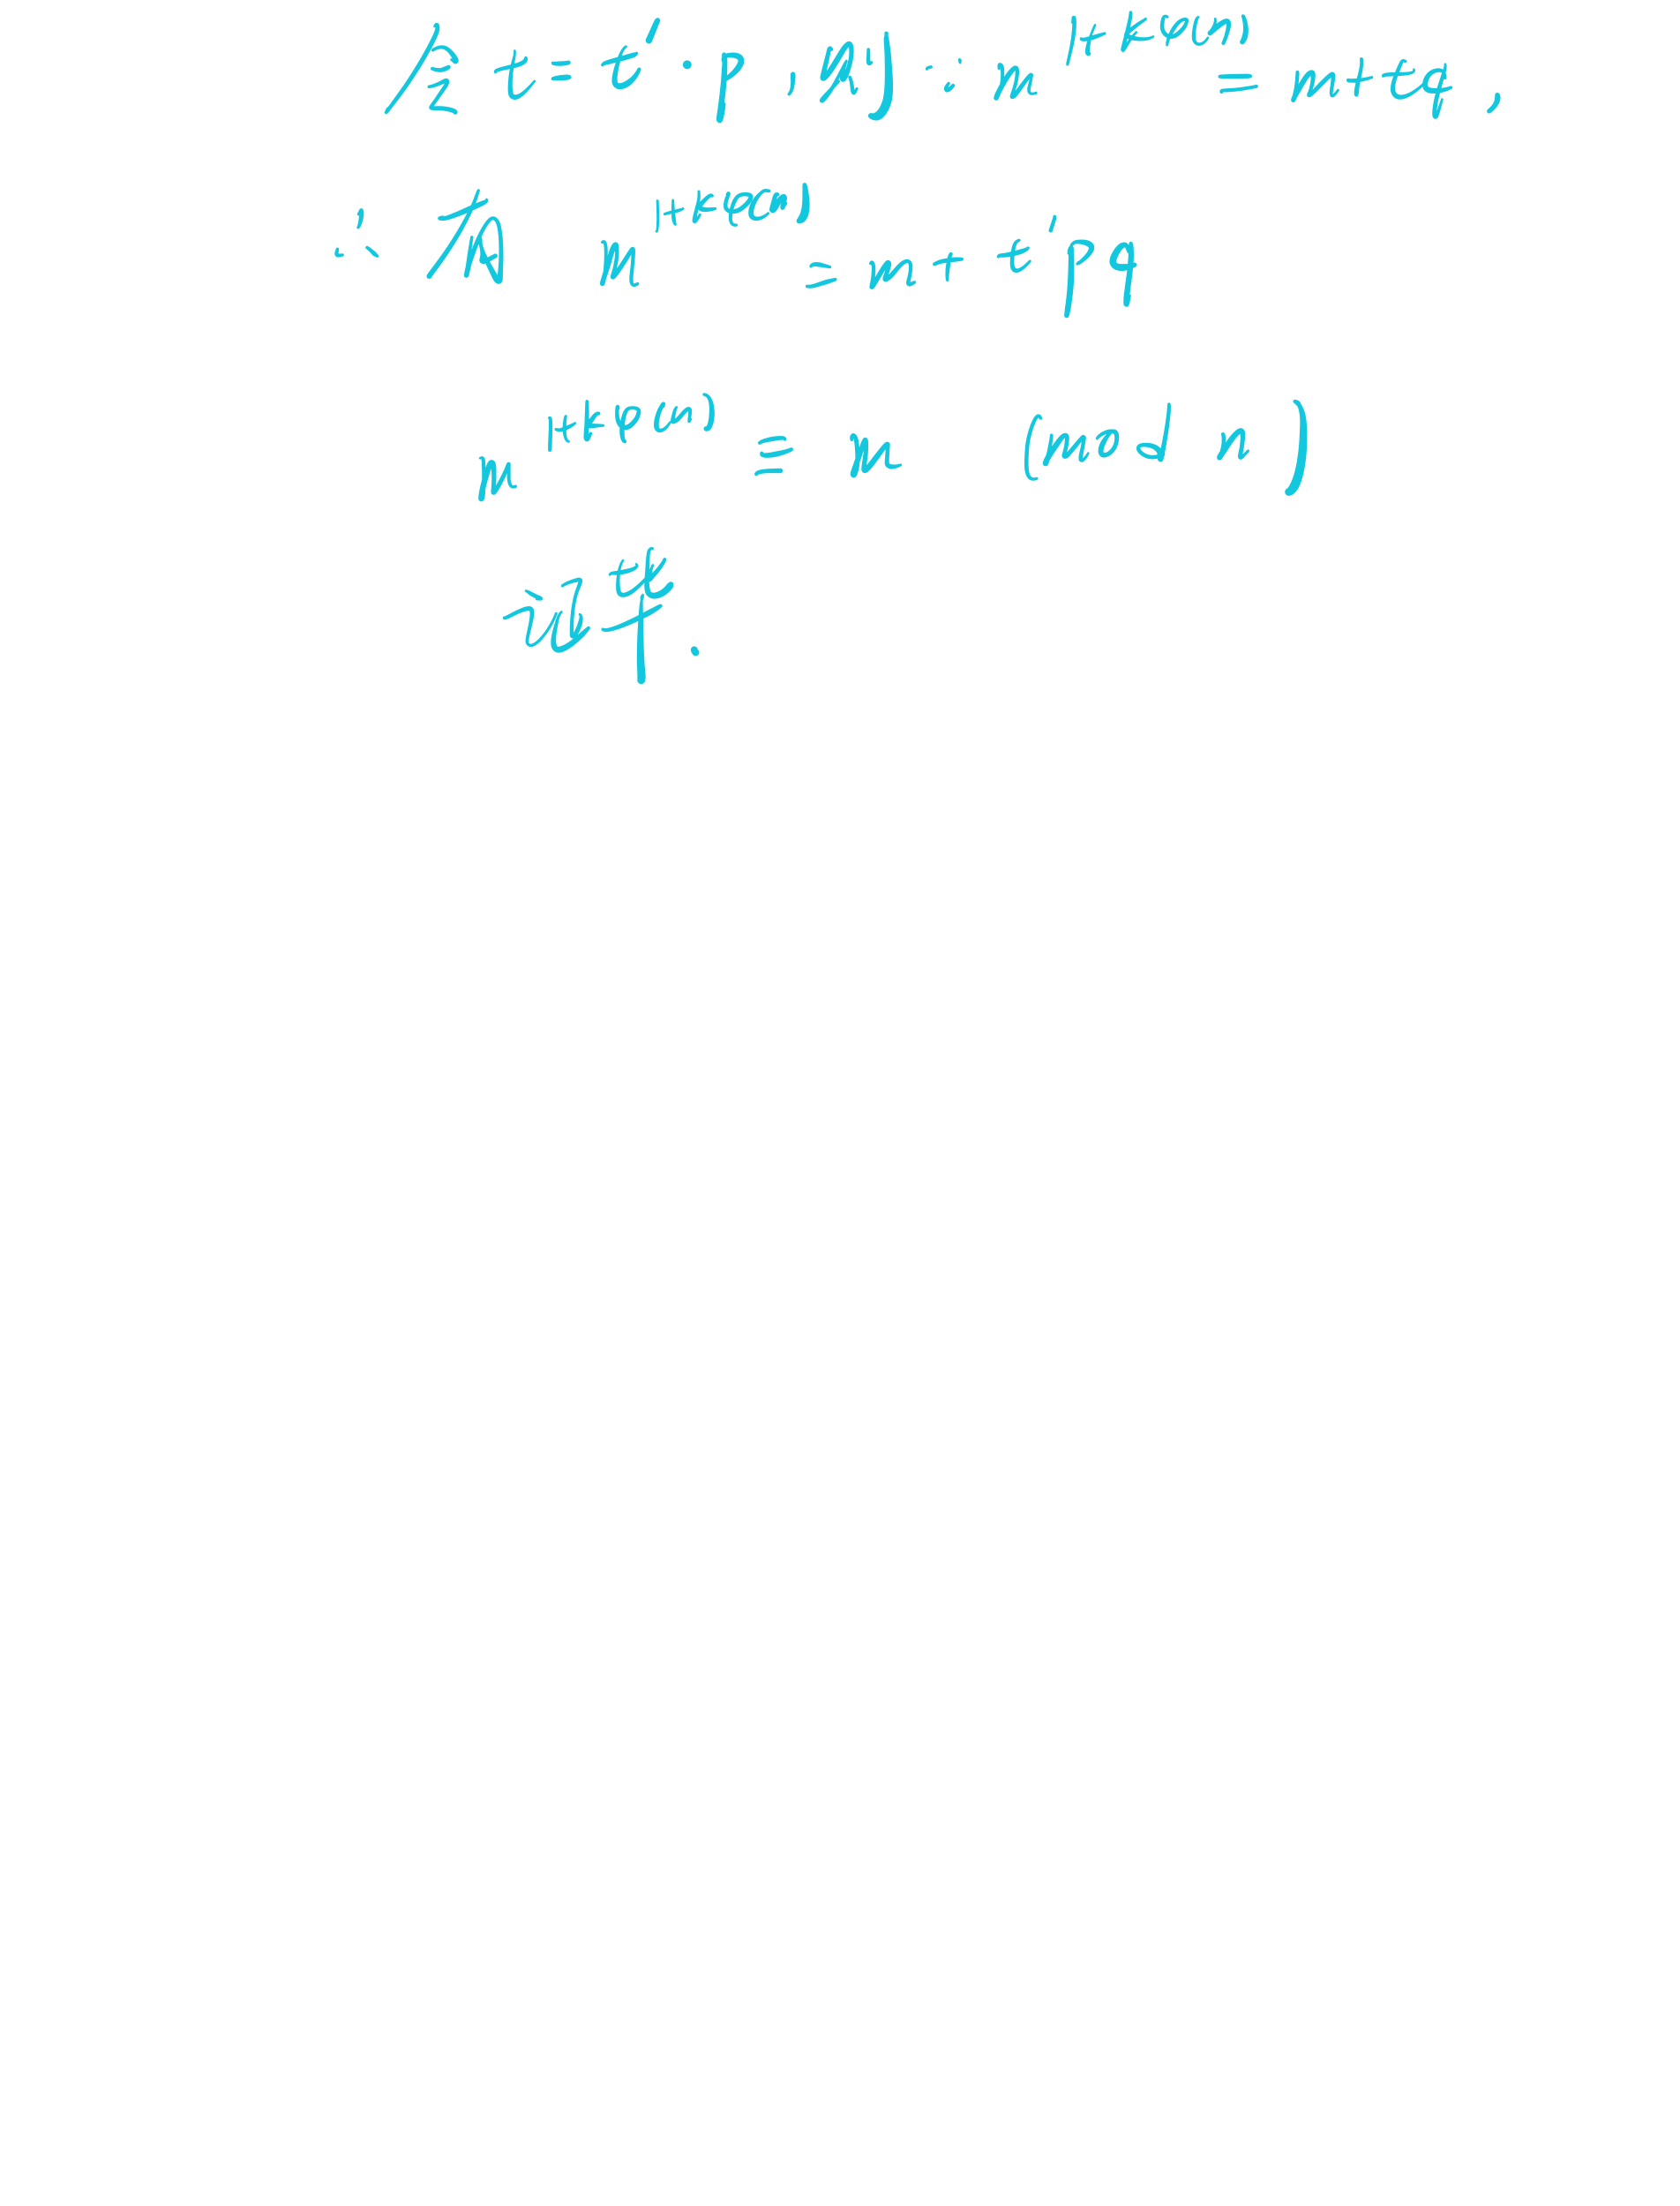 令 t = t′·p, 则 ∵ m^{1+kφ(n)} = m+tq,
∴ 有 m^{1+kφ(n)} = m + t′pq
m^{1+kφ(n)} ≡ m (mod n)
证毕.